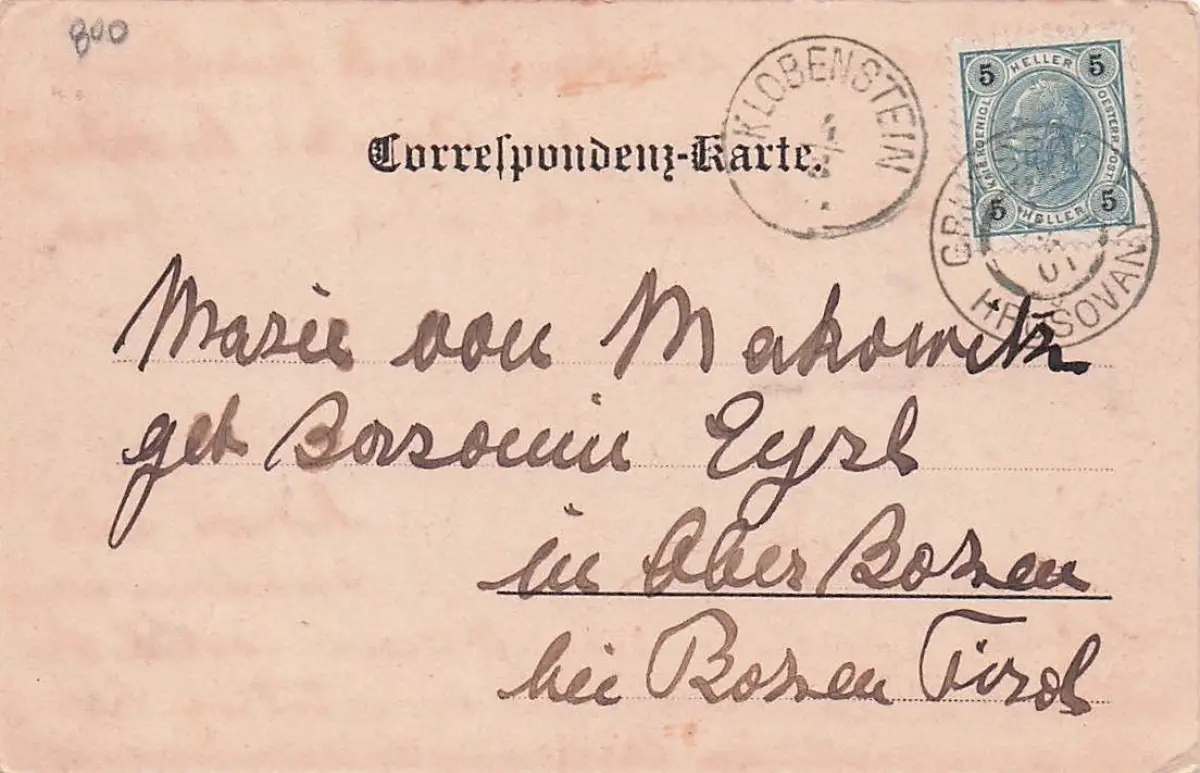 800
Correspondenz-Karte.
KLOBENSTEIN
5 HELLER 5
OESTERR. POST
5 HELLER 5
HRUSOVANY
01
Marie von Makowitz
geb Baronin Eyrl
in Ober Bozen
bei Bozen Tirol